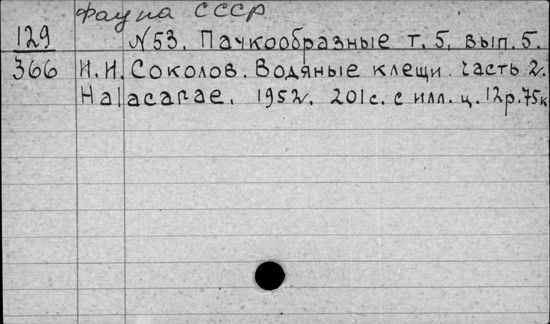 Фауна СССР
129 N53. Паукообразные т. 5, вып. 5.
366 И.И. Соколов. Водяные клещи. часть 2.
Halacarae. 1952г. 201с. с илл. ц. 12р.75к